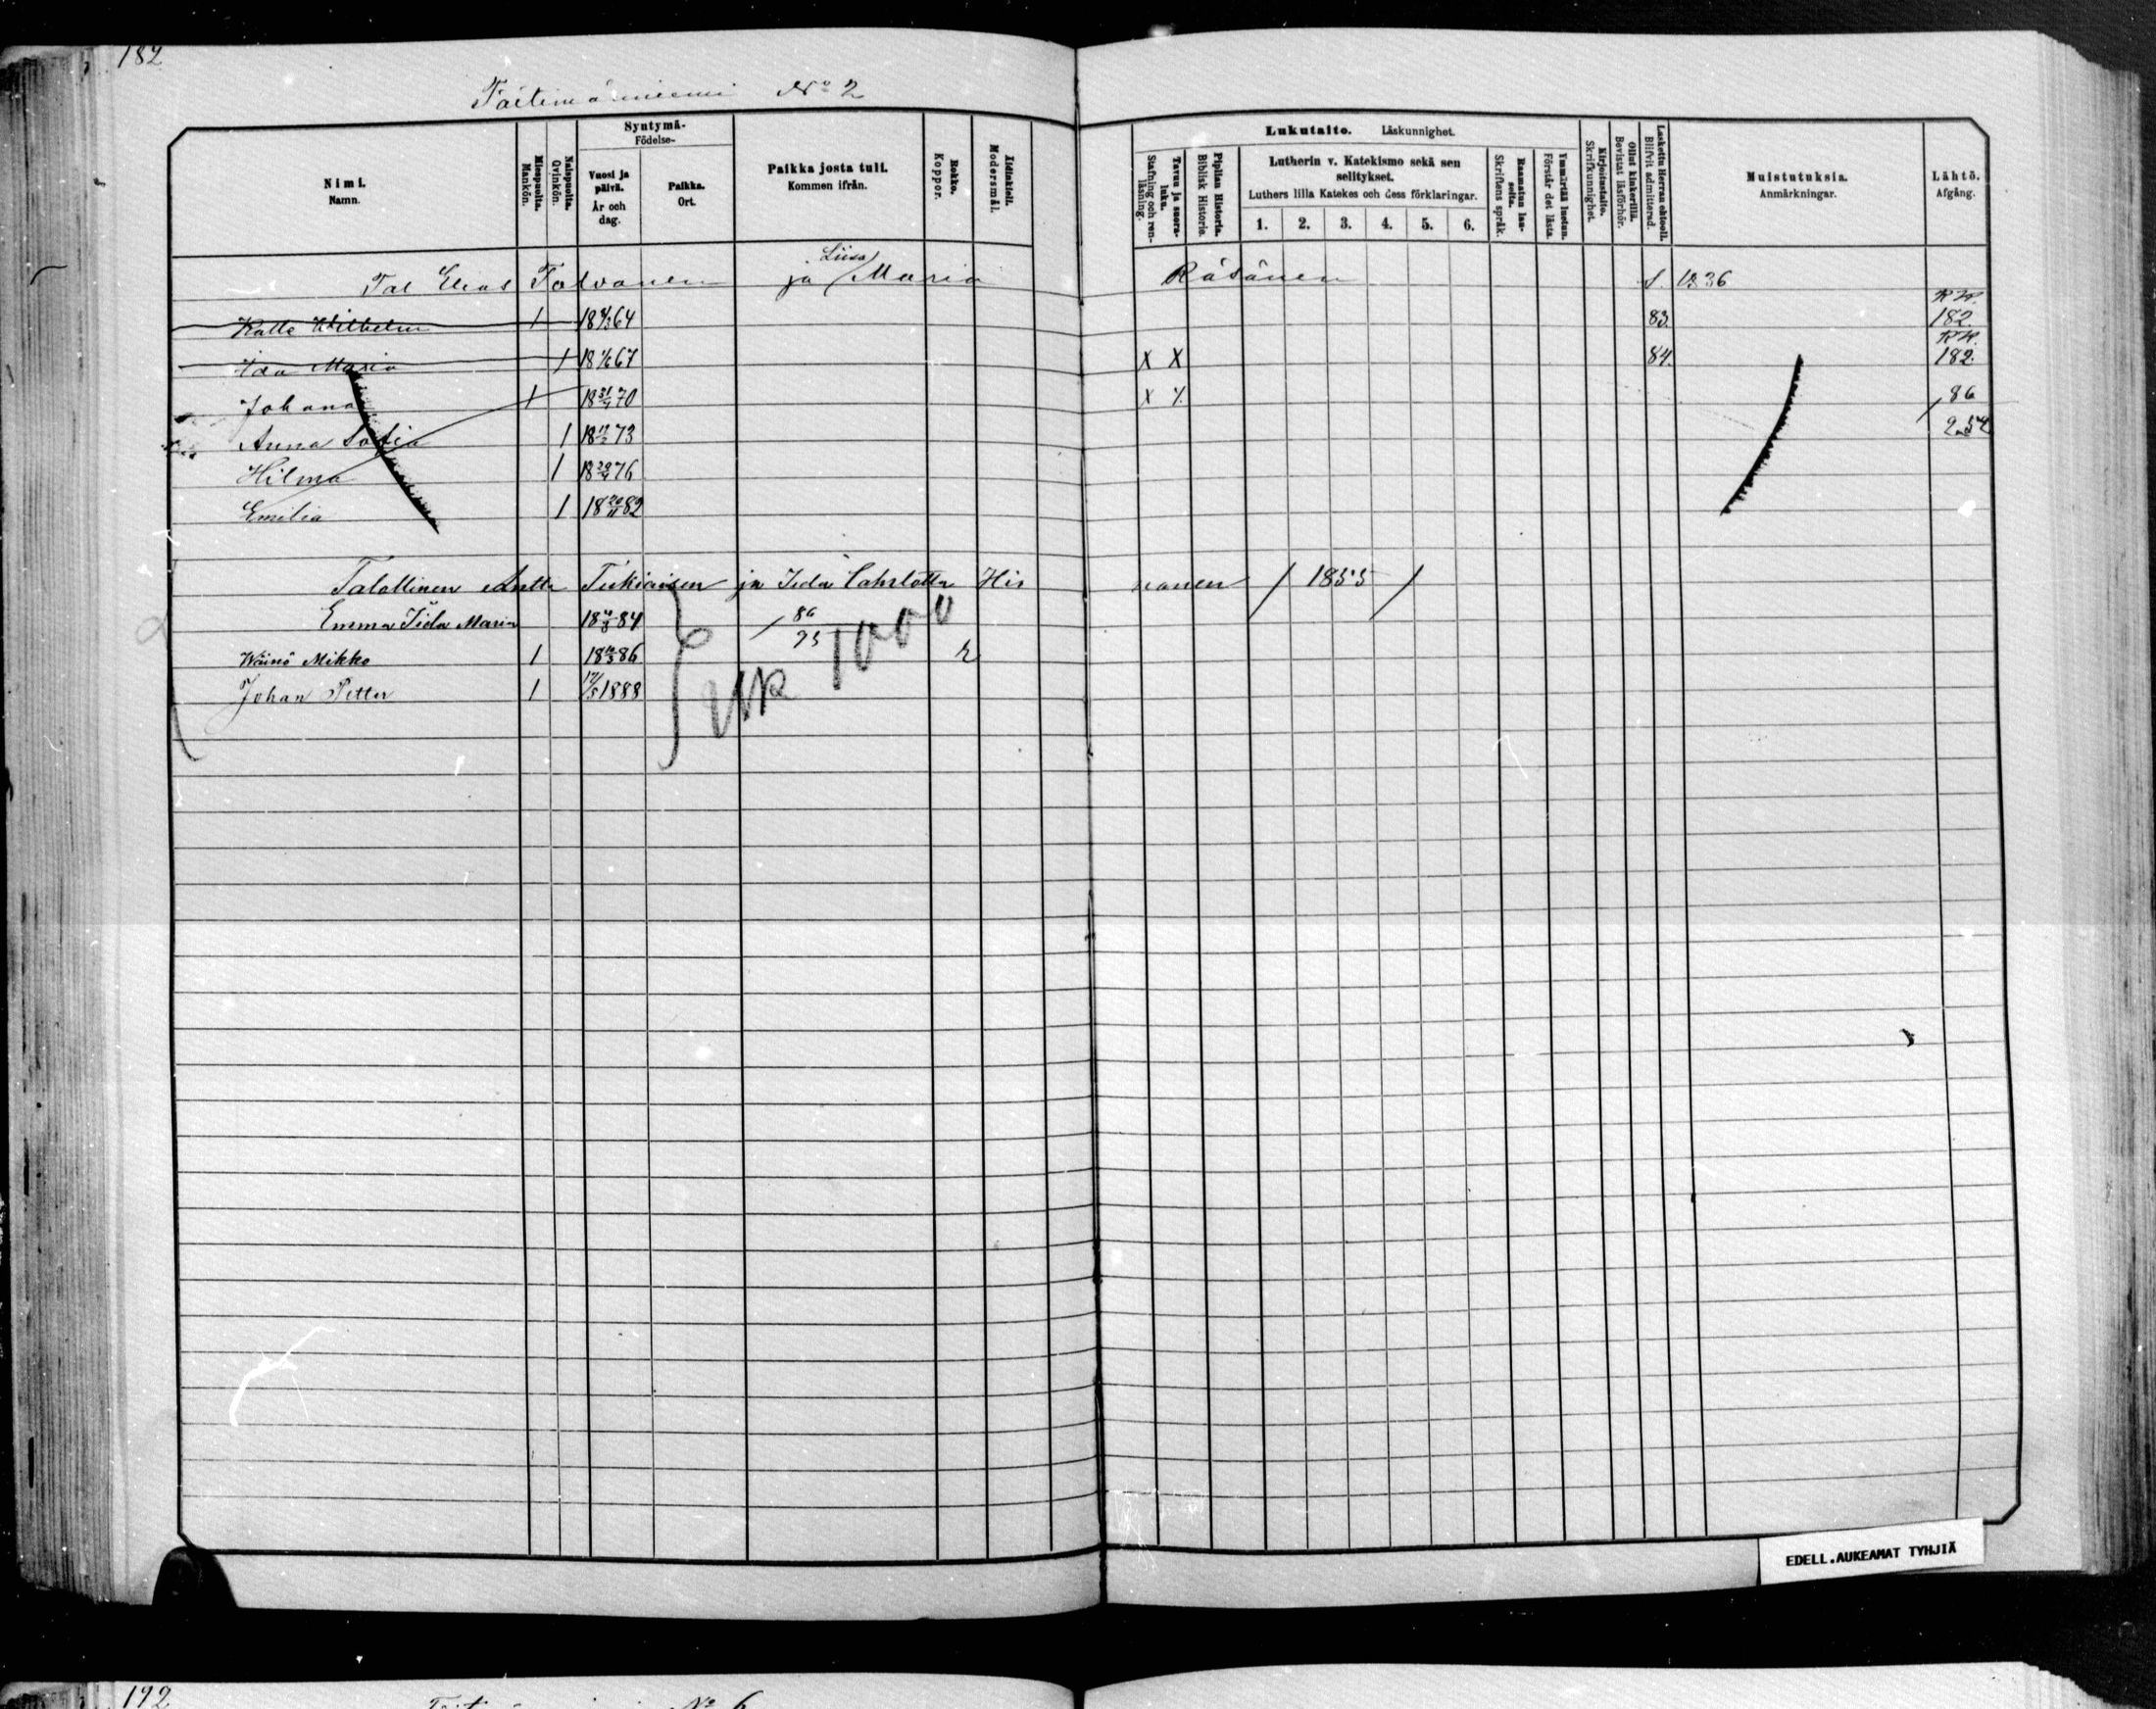 182
N:o 2
Syntymä-
Födelse-
Nimi.
Namn.
Miespuolta.
Mankön.
Naispuolta.
Qvinkön.
Vuosi ja päivä.
År och dag.
Paikka.
Ort.
Paikka josta tuli.
Kommen ifrån.
Rokko.
Koppor.
Äidinkieli.
Modersmål.
Lukutaito. Läskunnighet.
Tavuu ja suora-luku.
Stafning och ren-läsning.
Piplian Historia.
Biblisk Historie.
Lutherin v. Katekismo sekä sen selitykset.
Luthers lilla Katekes och dess förklaringar.
1. 2. 3. 4. 5. 6.
Raamatun lau-seita.
Skriftens språk.
Ymmärtää luetun.
Förstår det lästa.
Kirjoitustaito.
Skrifkunnighet.
Ollut kinkerillä.
Bevistat läsförhör.
Laskettu Herran ehtooll.
Blifvit admitterad.
Muistutuksia.
Anmärkningar.
Lähtö.
Afgång.
Tal Elias Tolvanen ja Liisa Maria Räsänen s. 1836
Kalle Wilhelm 1 64 83. RK. 182.
Ida Maria 1 67 X X 84. RK. 182.
Johana 1 18 31/7 70 X 86
Anna Sofia 1 18 73 254
Hilma 1 18 76
Emilia 1 18 20/11 82
Talollinen Antti Tiikiaisen ja Iida Hir vonen / 1855 /
Emma Iida Maria 84 86
Wäinö Mikko 1 86
Johan Petter 1 1888
1000
EDELL.AUKEAMAT TYHJIÄ
192
N:o 6